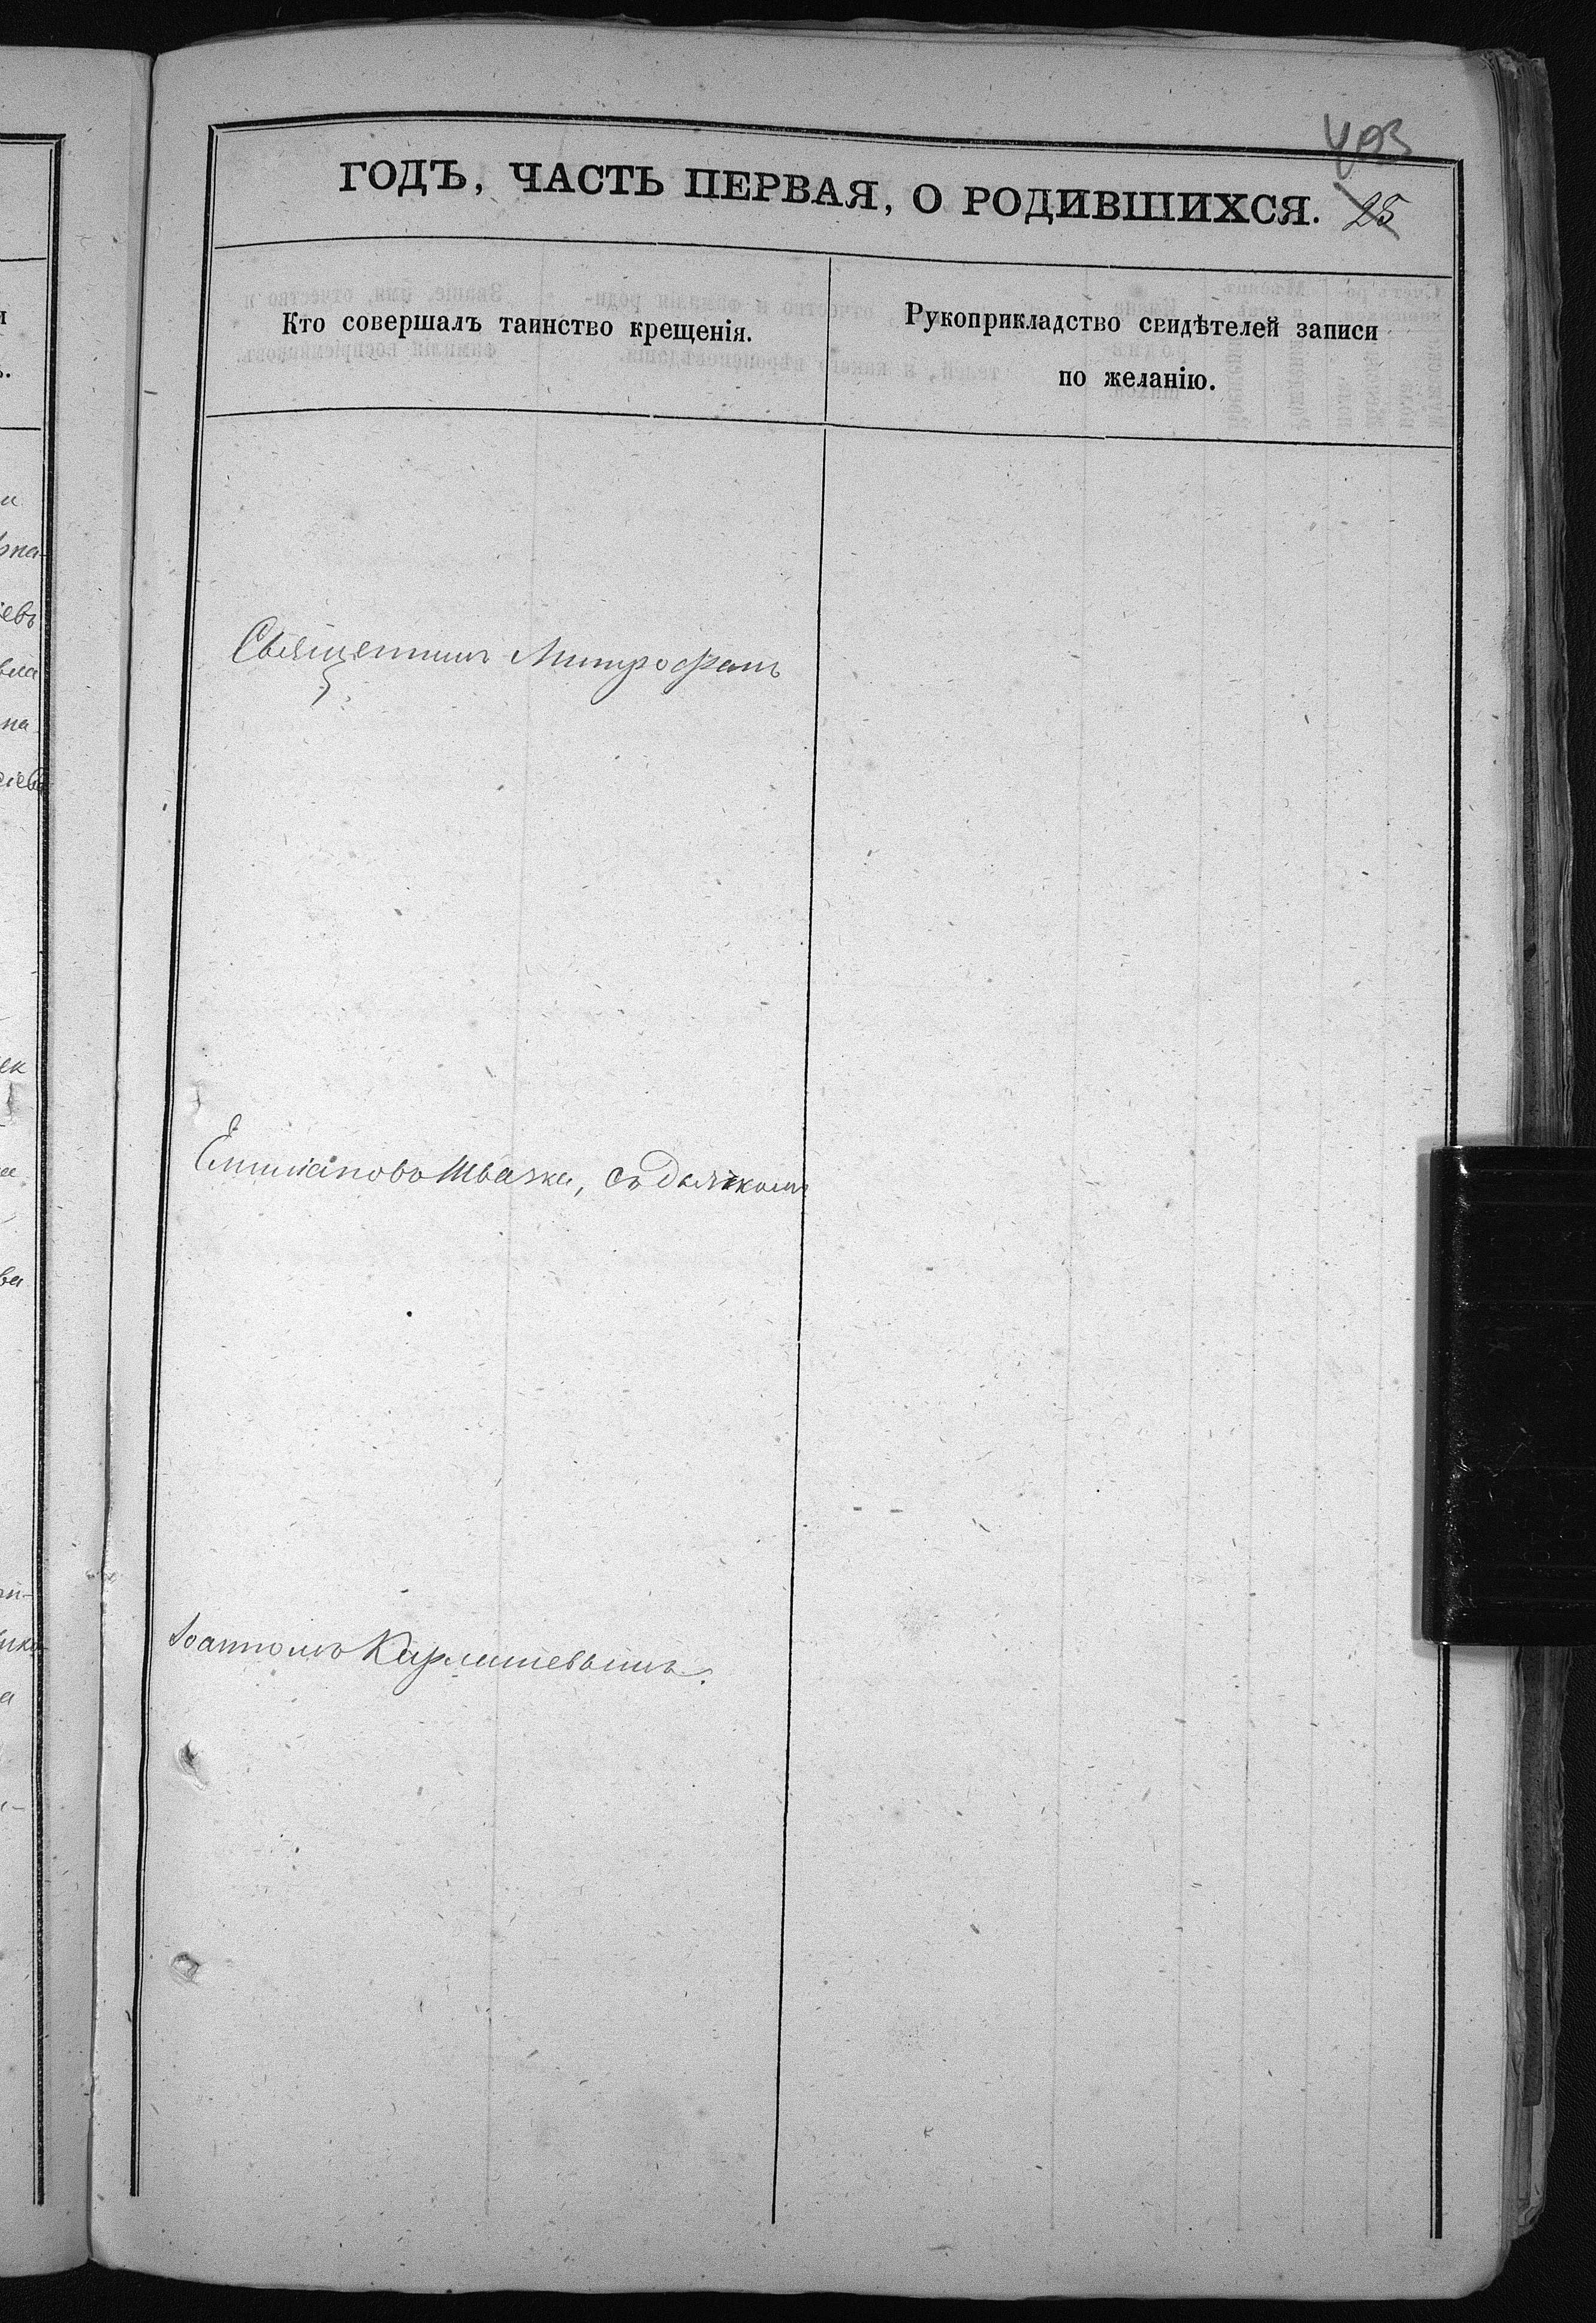 403
ГОДЪ, ЧАСТЬ ПЕРВАЯ, О РОДИВШИХСЯ. 25
Кто совершалъ таинство крещенія.
Рукоприкладство свидѣтелей записи
по желанію.
Священникъ Митрофанъ
Емиліановъ съ дьячкомъ
Іоанномъ